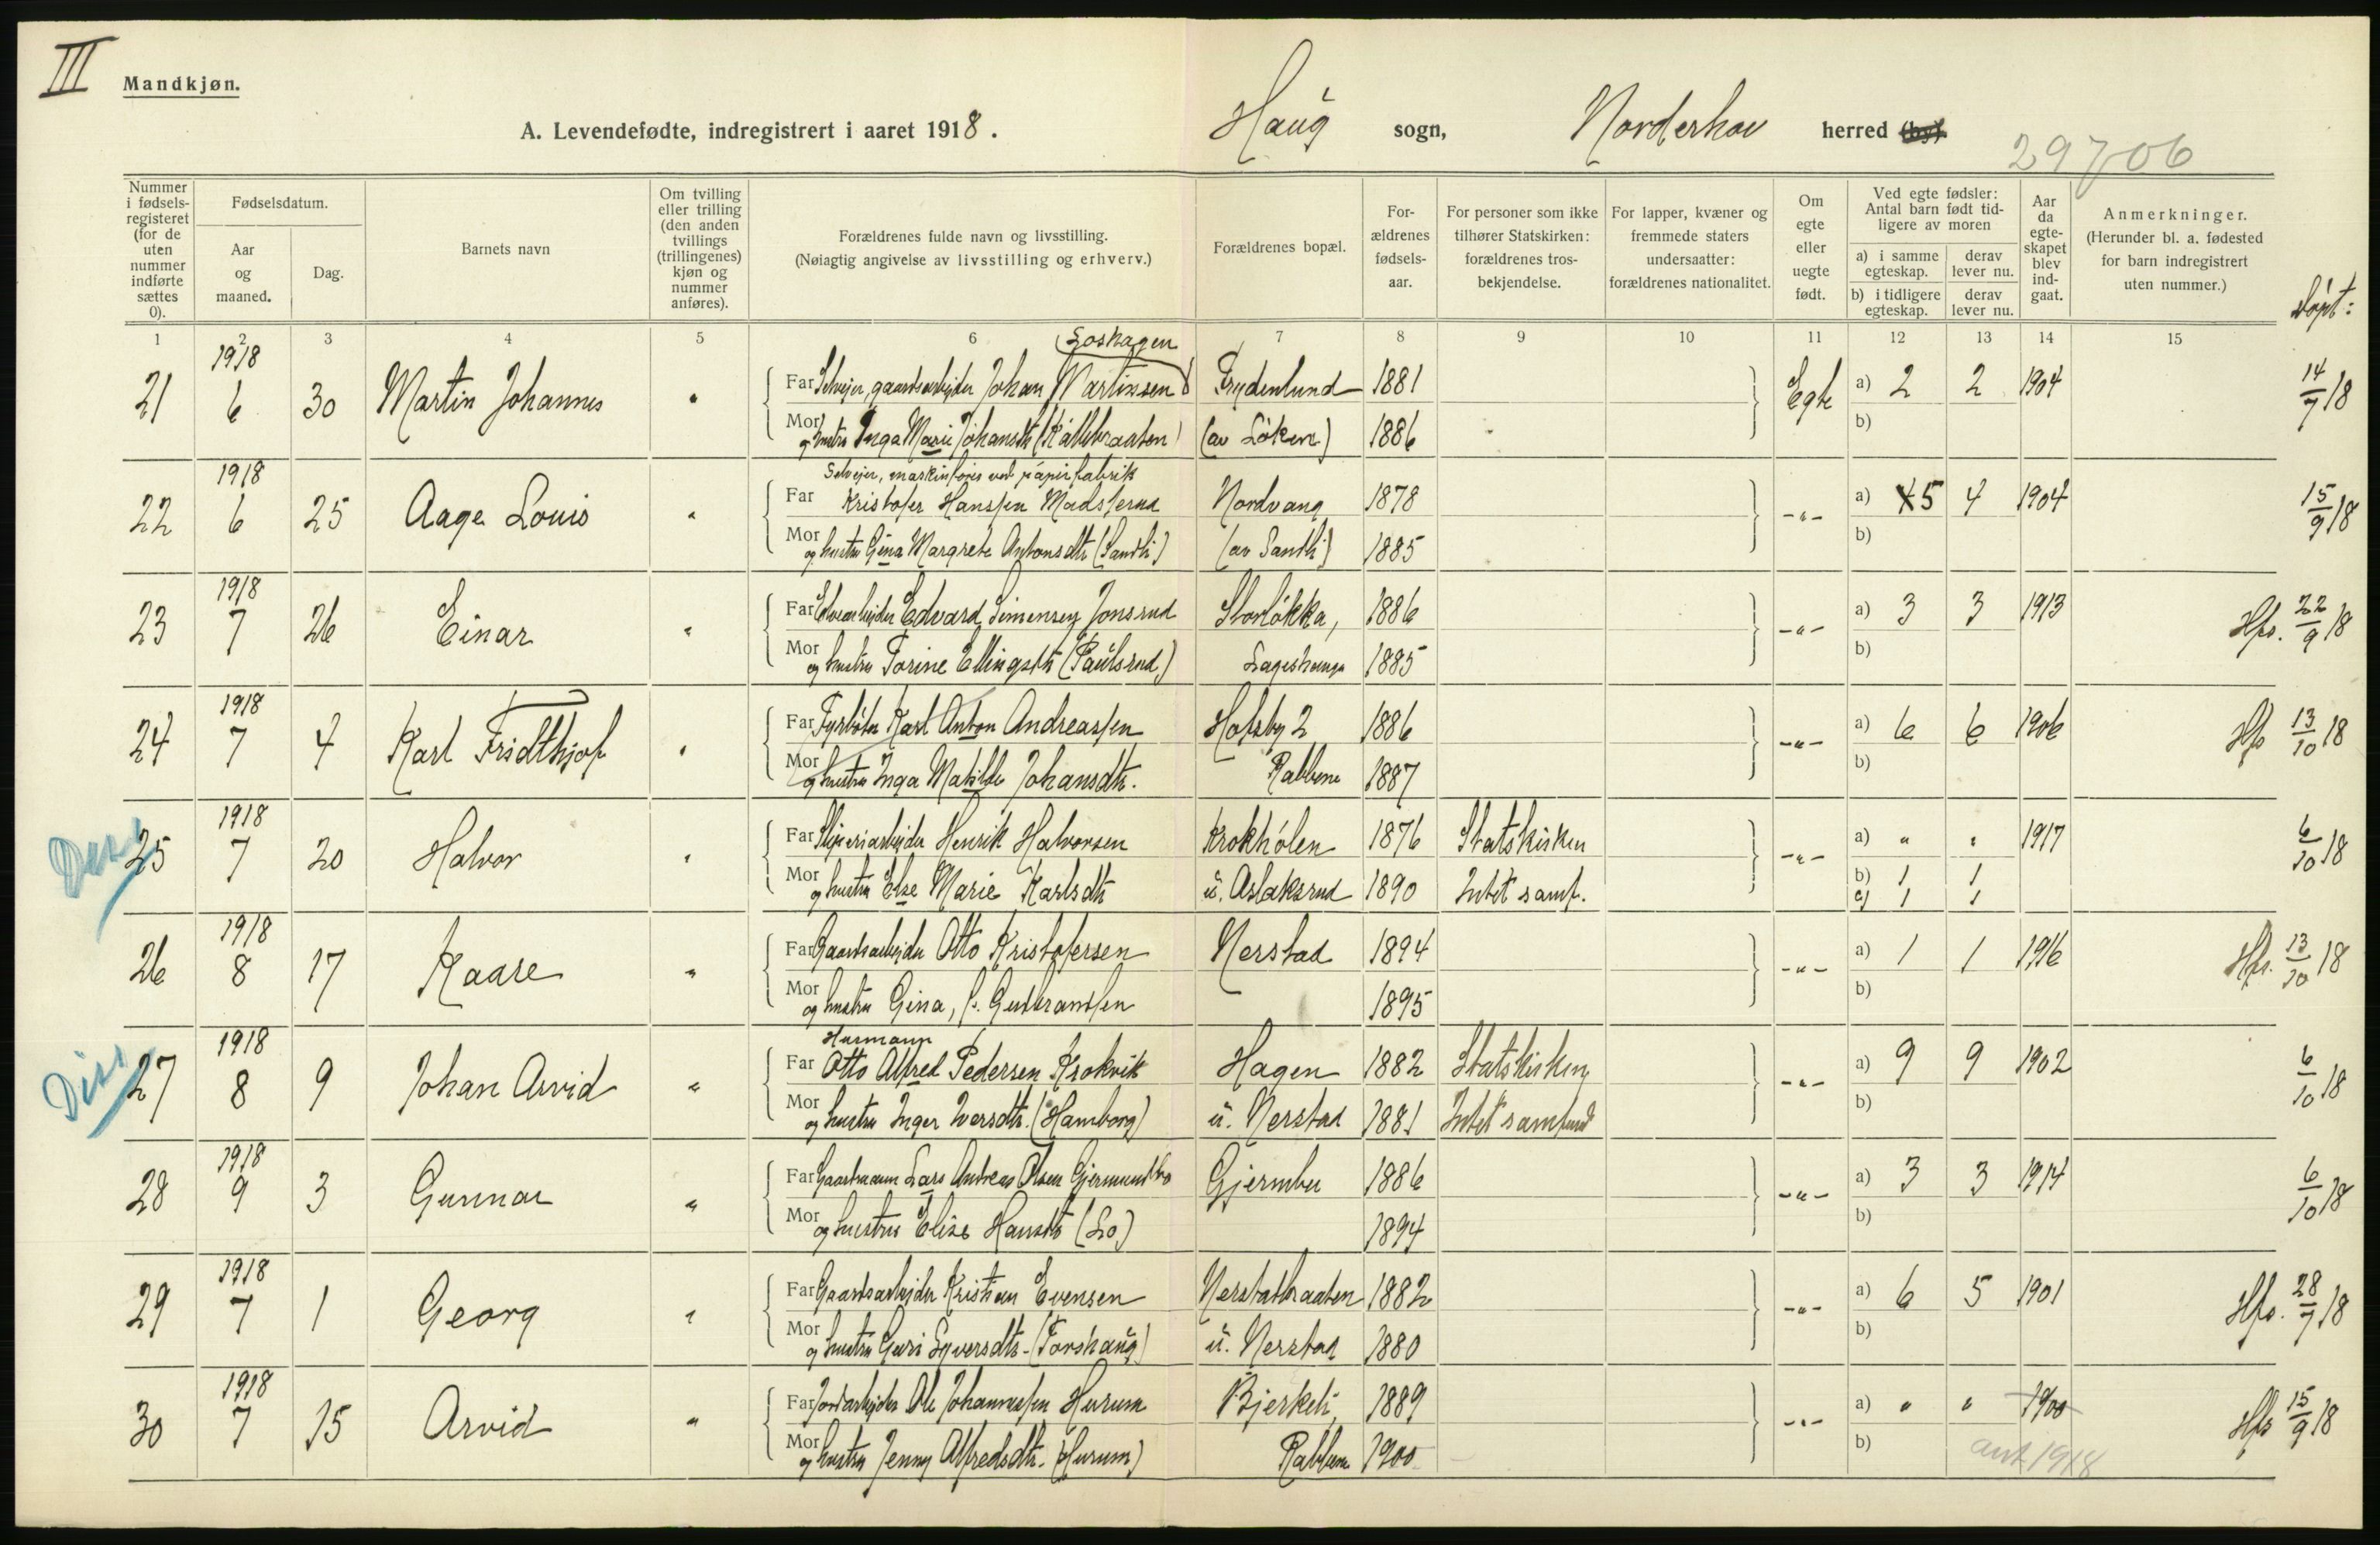 III
Mandkjøn.
A. Levendefødte, indregistrert i aaret 1918.
Haug sogn, Norderhov herred (by).
29706
Nummer i fødselsregisteret (for de uten nummer indførte sættes 0).
Fødselsdatum.
Aar og maaned.
Dag.
Barnets navn
Om tvilling eller trilling (den anden tvillings (trillingenes) kjøn og nummer anføres).
Forældrenes fulde navn og livsstilling.
(Nøiagtig angivelse av livsstilling og erhverv.)
Forældrenes bopæl.
Forældrenes fødselsaar.
For personer som ikke tilhører Statskirken: forældrenes trosbekjendelse.
For lapper, kvæner og fremmede staters undersaatter: forældrenes nationalitet.
Om egte eller uegte født.
Ved egte fødsler: Antal barn født tidligere av moren
a) i samme egteskap. derav lever nu.
b) i tidligere egteskap. derav lever nu.
Aar da egteskapet blev indgaat.
Anmerkninger.
(Herunder bl. a. fødested for barn indregistrert uten nummer.)
Døpt:
1 2 3 4 5 6 7 8 9 10 11 12 13 14 15
Loshagen
1918
21 6 30 Martin Johannes " Far Selveier, gaardsarbeider Johan Martinsen Frydenlund 1881 Egte a) 2 2 1904 14/7 18
Mor og hustru Inga Marie Johansdtr. (Kallebraaten) (av Löken) 1886 b)
1918 Selveier, maskinfører ved papirfabrik
22 6 25 Aage Louis " Far Kristofer Hanssen Madsserud Nordvang 1878 -"- a) 5 4 1904 15/9 18
Mor og hustru Gina Margrete Antonsdtr. (Sandli) (av Sandli) 1885 b)
1918
23 7 26 Einar " Far Edvard Simensen Jonsrud Storløkka, 1886 -"- a) 3 3 1913 Hfs. 22/9 18
Mor og hustru Torine Ellingsdtr. (Paulsrud) 1885 b)
1918
24 7 4 Karl Fridthjof " Far Fyrbøter Karl Anton Andreassen Hofsby 2 1886 -"- a) 6 6 1906 Hfs 13/10 18
Mor og hustru Inga Matilde Johansdtr. Rabbene 1887 b)
1918
25 7 20 Halvor " Far Sliperiarbeider Henrik Halvorsen Krokhólen 1876 Statskirken -"- a) " " 1917 6/10 18
Mor og hustru Else Marie Karlsdtr u. Aslaksrud 1890 Intet samf. b) 1 1
c) 1 1
1918
26 8 17 Kaare " Far Gaardsarbeider Otto Kristofersen Nerstad 1894 -"- a) 1 1 1916 Hfs. 13/10 18
Mor og hustru Gina, f. Gulbrandsen 1895 b)
Diss.
1918 Husmann
27 8 9 Johan Arvid " Far Otto Alfred Pedersen Krokvik Hagen 1882 Statskirken -"- a) 9 9 1902 6/10 18
Mor og hustru Inger Iversdtr. (Hamborg) u. Nerstad 1881 Intet samfund b)
1918
28 9 3 Gunnar " Far Gaardmann Lars Andreas Olsen Gjermundbo Gjermbu 1886 -"- a) 3 3 1914 6/10 18
Mor og hustru Elise Hansdtr (Lo) 1894 b)
1918
29 7 1 Georg " Far Gaardsarbeider Kristian Evensen Nerstadbraaten 1882 -"- a) 6 5 1901 Hfs. 28/7 18
Mor og hustru Guri Syversdtr. (Torshaug) u. Nerstad 1880 b)
1918
30 7 15 Arvid " Far Jordarbeider Ole Johannessen Hurum Bjerkeli, 1889 -"- a) " " 1900 Hfs 15/9 18
Mor og hustru Jenny Alfredsdtr. (Hurum) Rabben 1900 b) ant. 1918